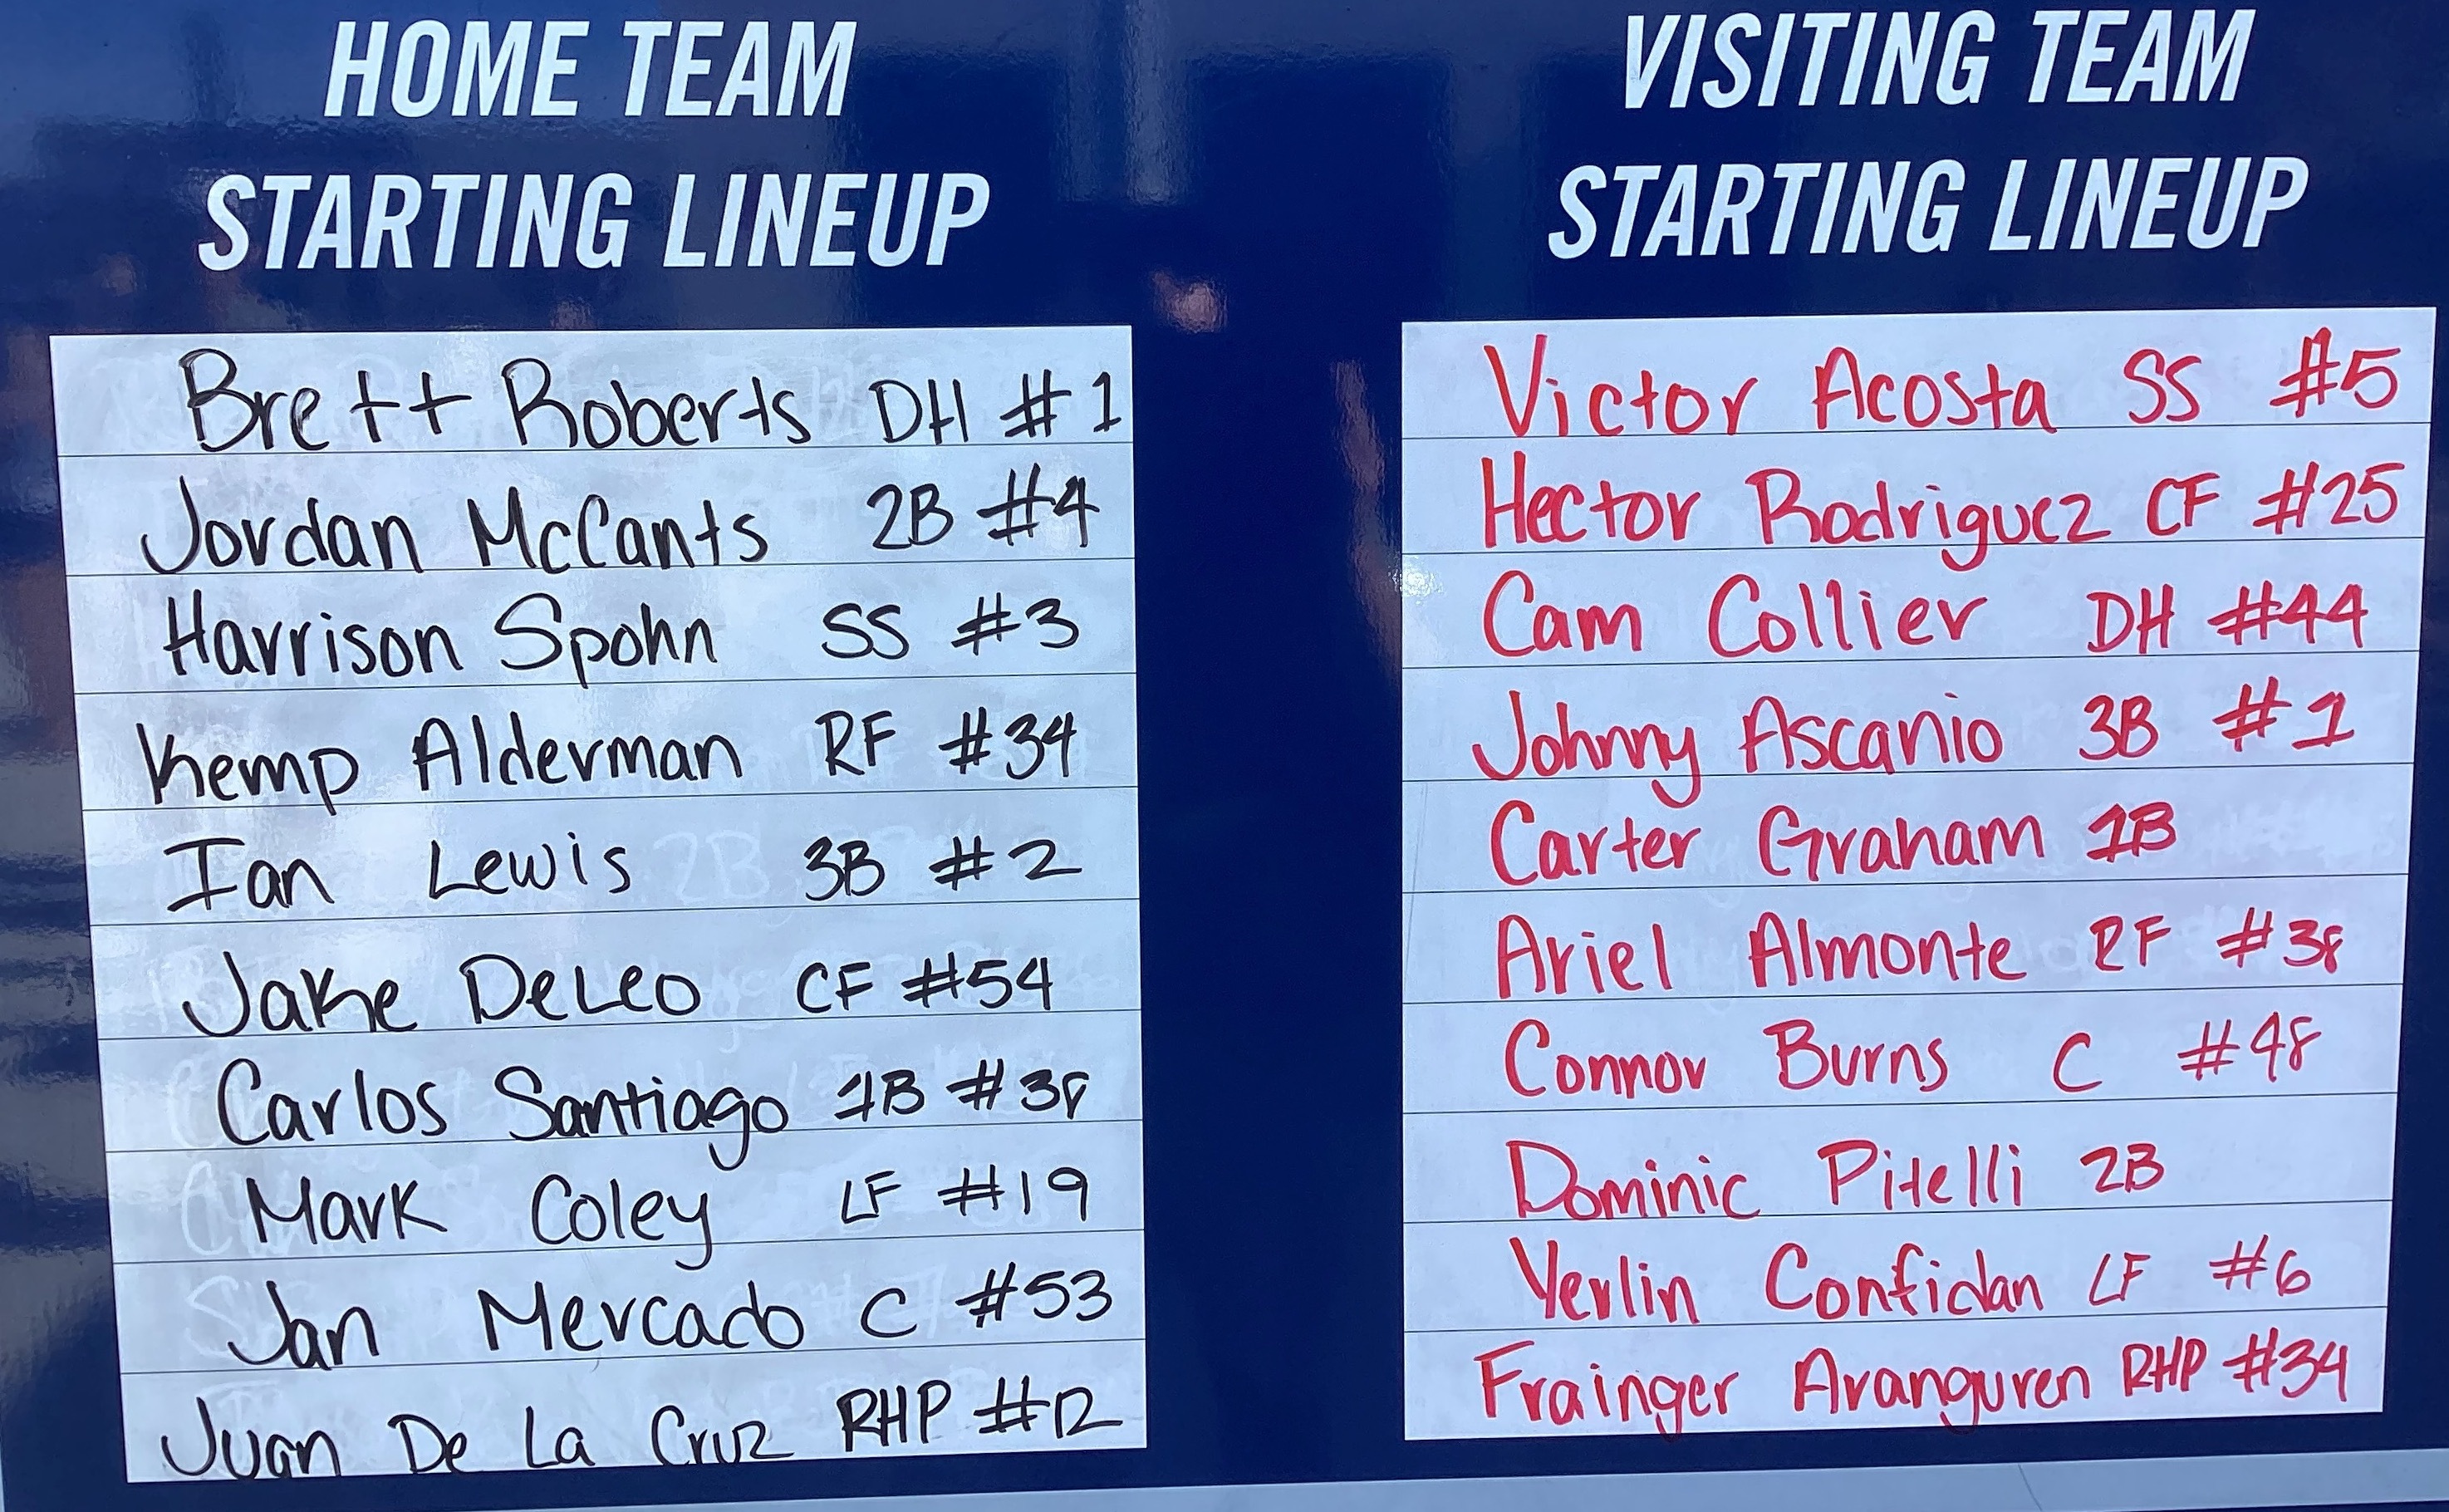 HOME TEAM
STARTING LINEUP
Brett Roberts DH #1
Jordan McCants 2B #4
Harrison Spohn SS #3
Kemp Alderman RF #34
Ian Lewis 3B #2
Jake DeLeo CF #54
Carlos Santiago 1B #38
Mark Coley LF #19
Jan Mercado C #53
Juan De La Cruz RHP #12
VISITING TEAM
STARTING LINEUP
Victor Acosta SS #5
Hector Rodriguez CF #25
Cam Collier DH #44
Johnny Ascanio 3B #1
Carter Graham 1B
Ariel Almonte RF #38
Connor Burns C #48
Dominic Pitelli 2B
Yerlin Confidan LF #6
Frainger Aranguren RHP #34